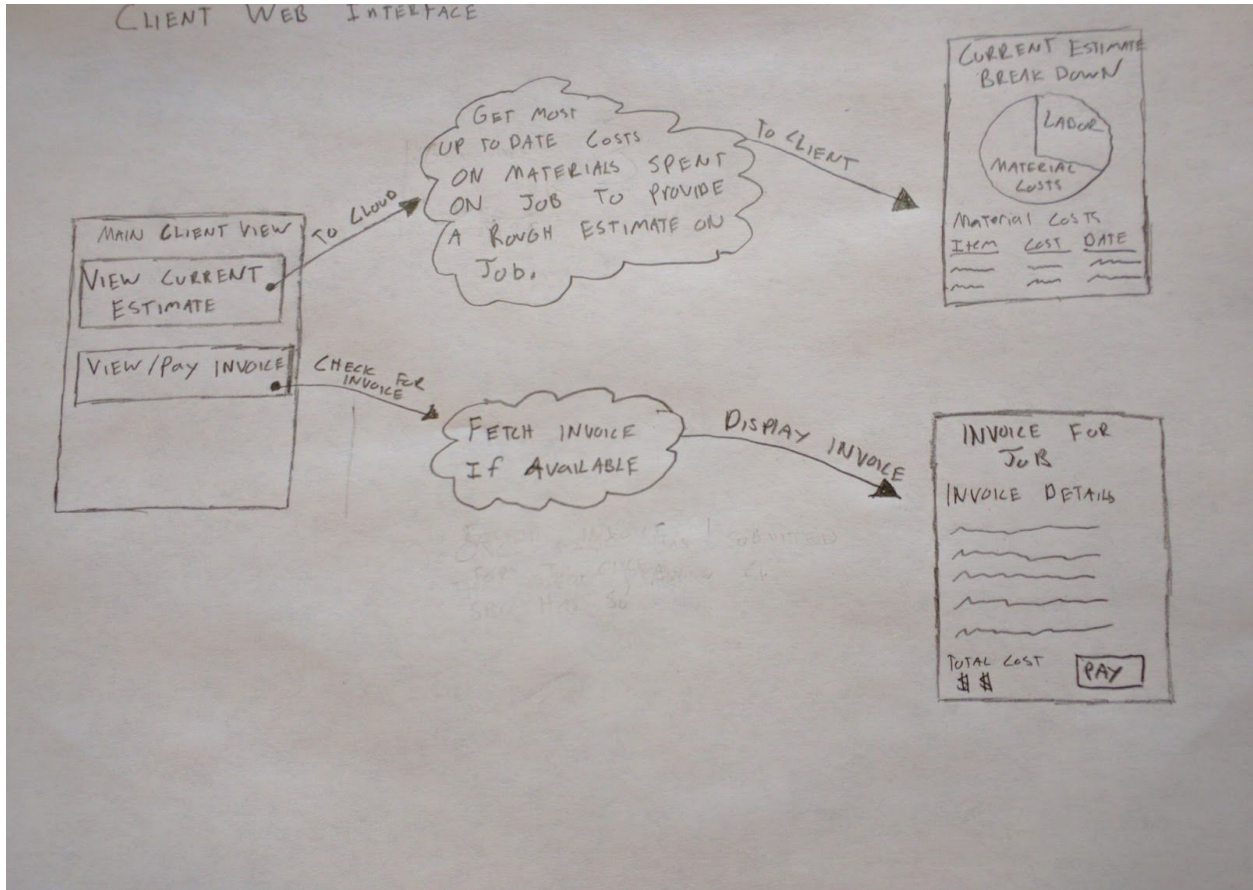 CLIENT WEB INTERFACE
MAIN CLIENT VIEW
VIEW CURRENT
ESTIMATE
VIEW/PAY INVOICE
TO CLOUD
GET MOST
UP TO DATE COSTS
ON MATERIALS SPENT
ON JOB TO PROVIDE
A ROUGH ESTIMATE ON
Job.
TO CLIENT
CURRENT ESTIMATE
BREAK DOWN
LABOR
MATERIAL
COSTS
Material Costs
Item COST DATE
CHECK FOR
INVOICE
FETCH INVOICE
If AVAILABLE
DISPLAY INVOICE
INVOICE FOR
JOB
INVOICE DETAILS
TOTAL COST
$ $
PAY